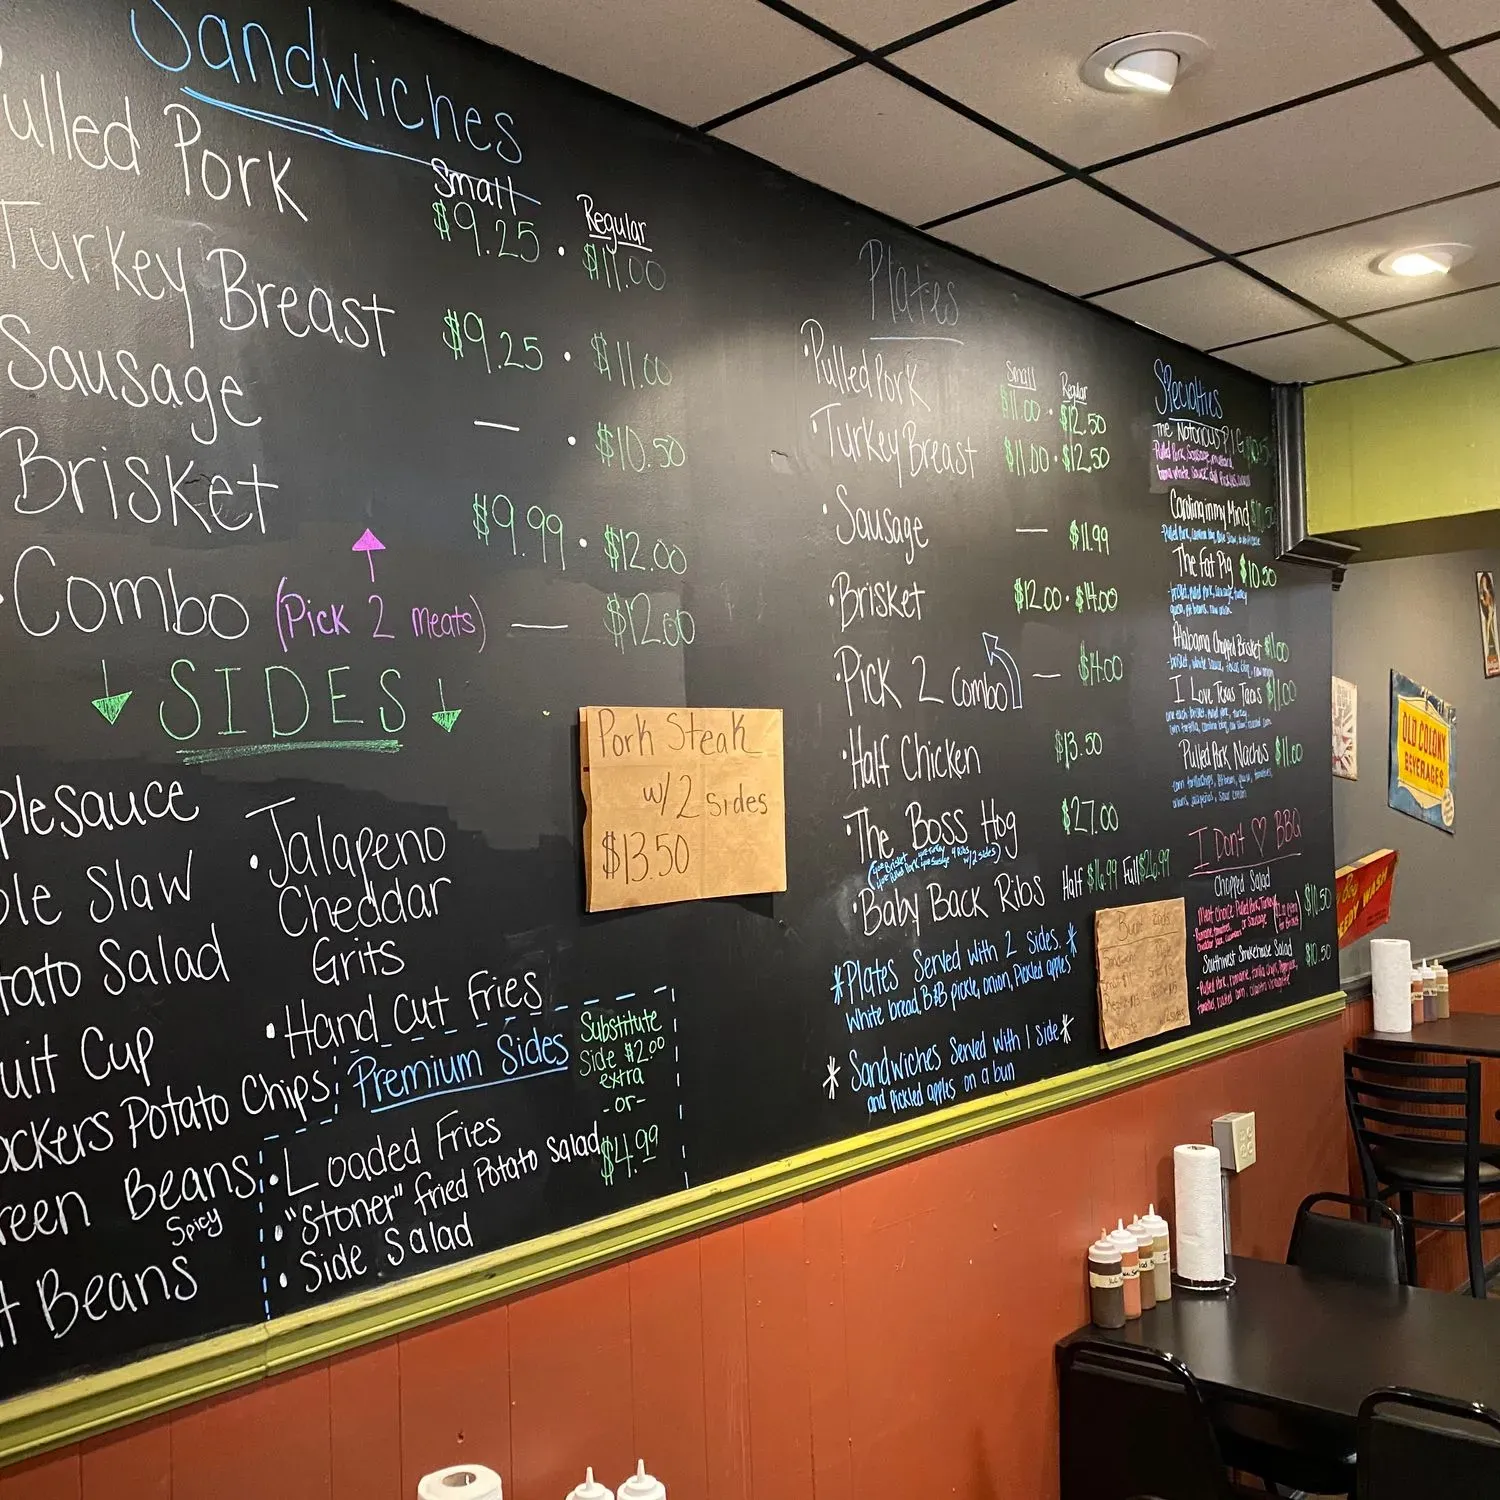 Sandwiches
Small
Regular
Pulled Pork $9.25 . $11.00
Turkey Breast $9.25 . $11.00
Sausage — . $10.50
Brisket $9.99 . $12.00
Combo (Pick 2 meats) — $12.00
SIDES
plesauce
ole Slaw
tato Salad
uit Cup
ockers Potato Chips
reen Beans
Spicy
t Beans
• Jalapeno
Cheddar
Grits
• Hand Cut Fries
Premium Sides
• Loaded Fries
• "Stoner" fried Potato Salad
• Side Salad
Substitute
Side $2.00
extra
-or-
$4.99
Pork Steak
w/2 sides
$13.50
Plates
Small
Regular
• Pulled Pork $11.00 . $12.50
• Turkey Breast $11.00 . $12.50
• Sausage — $11.99
• Brisket $12.00 . $14.00
• Pick 2 Combo — $14.00
• Half Chicken $13.50
• The Boss Hog $27.00
w/2 sides
• Baby Back Ribs Half $16.99 Full $26.99
*Plates Served with 2 Sides. *
White bread, B&B pickle, onion, Pickled apples
* Sandwiches Served with 1 Side *
and Pickled apples on a bun
Specialties
The Notorious P.I.G
Pulled Pork, Sausage,
Carolina in my Mind
The Fat Pig $10.50
Alabama Chopped Brisket $11.00
I Love Texas Tacos $11.00
Pulled Pork Nachos $11.00
I Don't ♡ BBQ
Chopped Salad $11.50
Meat Choice Pulled Pork, Turkey
or Sausage
Southwest Smokehouse Salad $10.50
OLD COLONY
BEVERAGES